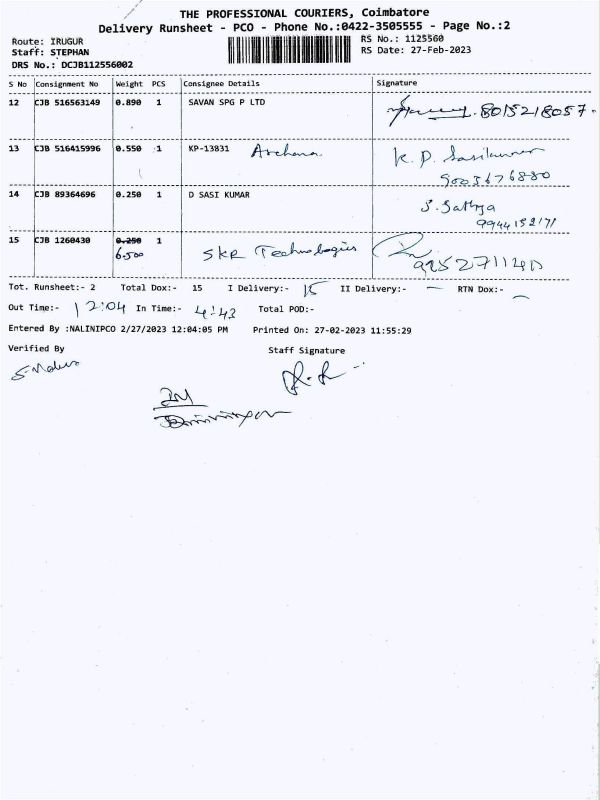 THE PROFESSIONAL COURIERS, Coimbatore
Delivery Runsheet - PCO - Phone No.:0422-3505555 - Page No.:2
Route: IRUGUR RS No.: 1125560
Staff: STEPHAN RS Date: 27-Feb-2023
DRS No.: DCJB112556002
S No Consignment No Weight PCS Consignee Details Signature
12 CJB 516563149 0.890 1 SAVAN SPG P LTD 8015218057
13 CJB 516415996 0.550 1 KP-13831 Archana K. P. Sasikumar
9003676880
14 CJB 89364696 0.250 1 D SASI KUMAR S. Sathya
9944152171
15 CJB 1260430 0.250 1 SKR Technologies
6.500 9952711140
Tot. Runsheet:- 2 Total Dox:- 15 I Delivery:- 15 II Delivery:- — RTN Dox:- —
Out Time:- 12:04 In Time:- 4:43 Total POD:-
Entered By :NALINIPCO 2/27/2023 12:04:05 PM Printed On: 27-02-2023 11:55:29
Verified By Staff Signature